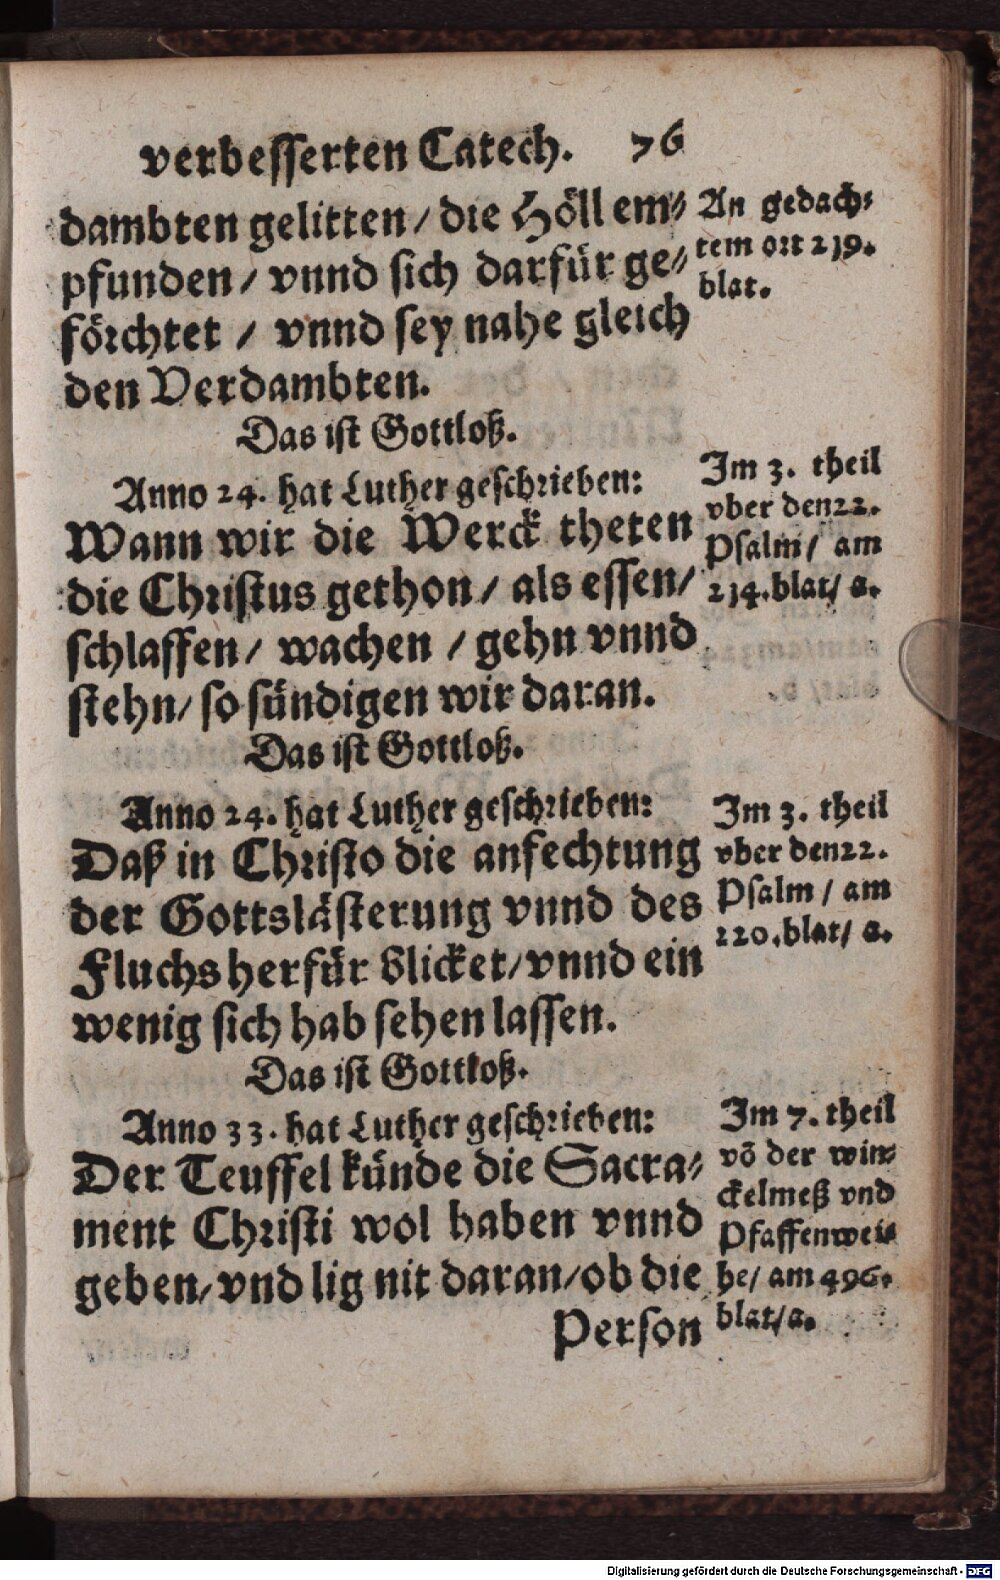 verbesserten Catech. 76
dambten gelitten/ die Höll em-
pfunden/ vnnd sich darfür ge-
förchtet / vnnd sey nahe gleich
den Verdambten.
An gedach-
tem ort 219.
blat.
Das ist Gottloß.
Anno 24. hat Luther geschrieben:
Wann wir die Werck theten
die Christus gethon/ als essen/
schlaffen/ wachen / gehn vnnd
stehn/ so sündigen wir daran.
Im 3. theil
vber den 22.
Psalm/ am
214. blat/ a.
Das ist Gottloß.
Anno 24. hat Luther geschrieben:
Daß in Christo die anfechtung
der Gottslästerung vnnd des
Fluchs herfür blicket/ vnnd ein
wenig sich hab sehen lassen.
Im 3. theil
vber den 22.
Psalm / am
220. blat/ a.
Das ist Gottloß.
Anno 33. hat Luther geschrieben:
Der Teuffel künde die Sacra-
ment Christi wol haben vnnd
geben/ vnd lig nit daran/ ob die
Person
Im 7. theil
võ der win-
ckelmeß vnd
Pfaffenwei-
he/ am 496.
blat/ a.
Digitalisierung gefördert durch die Deutsche Forschungsgemeinschaft - DFG